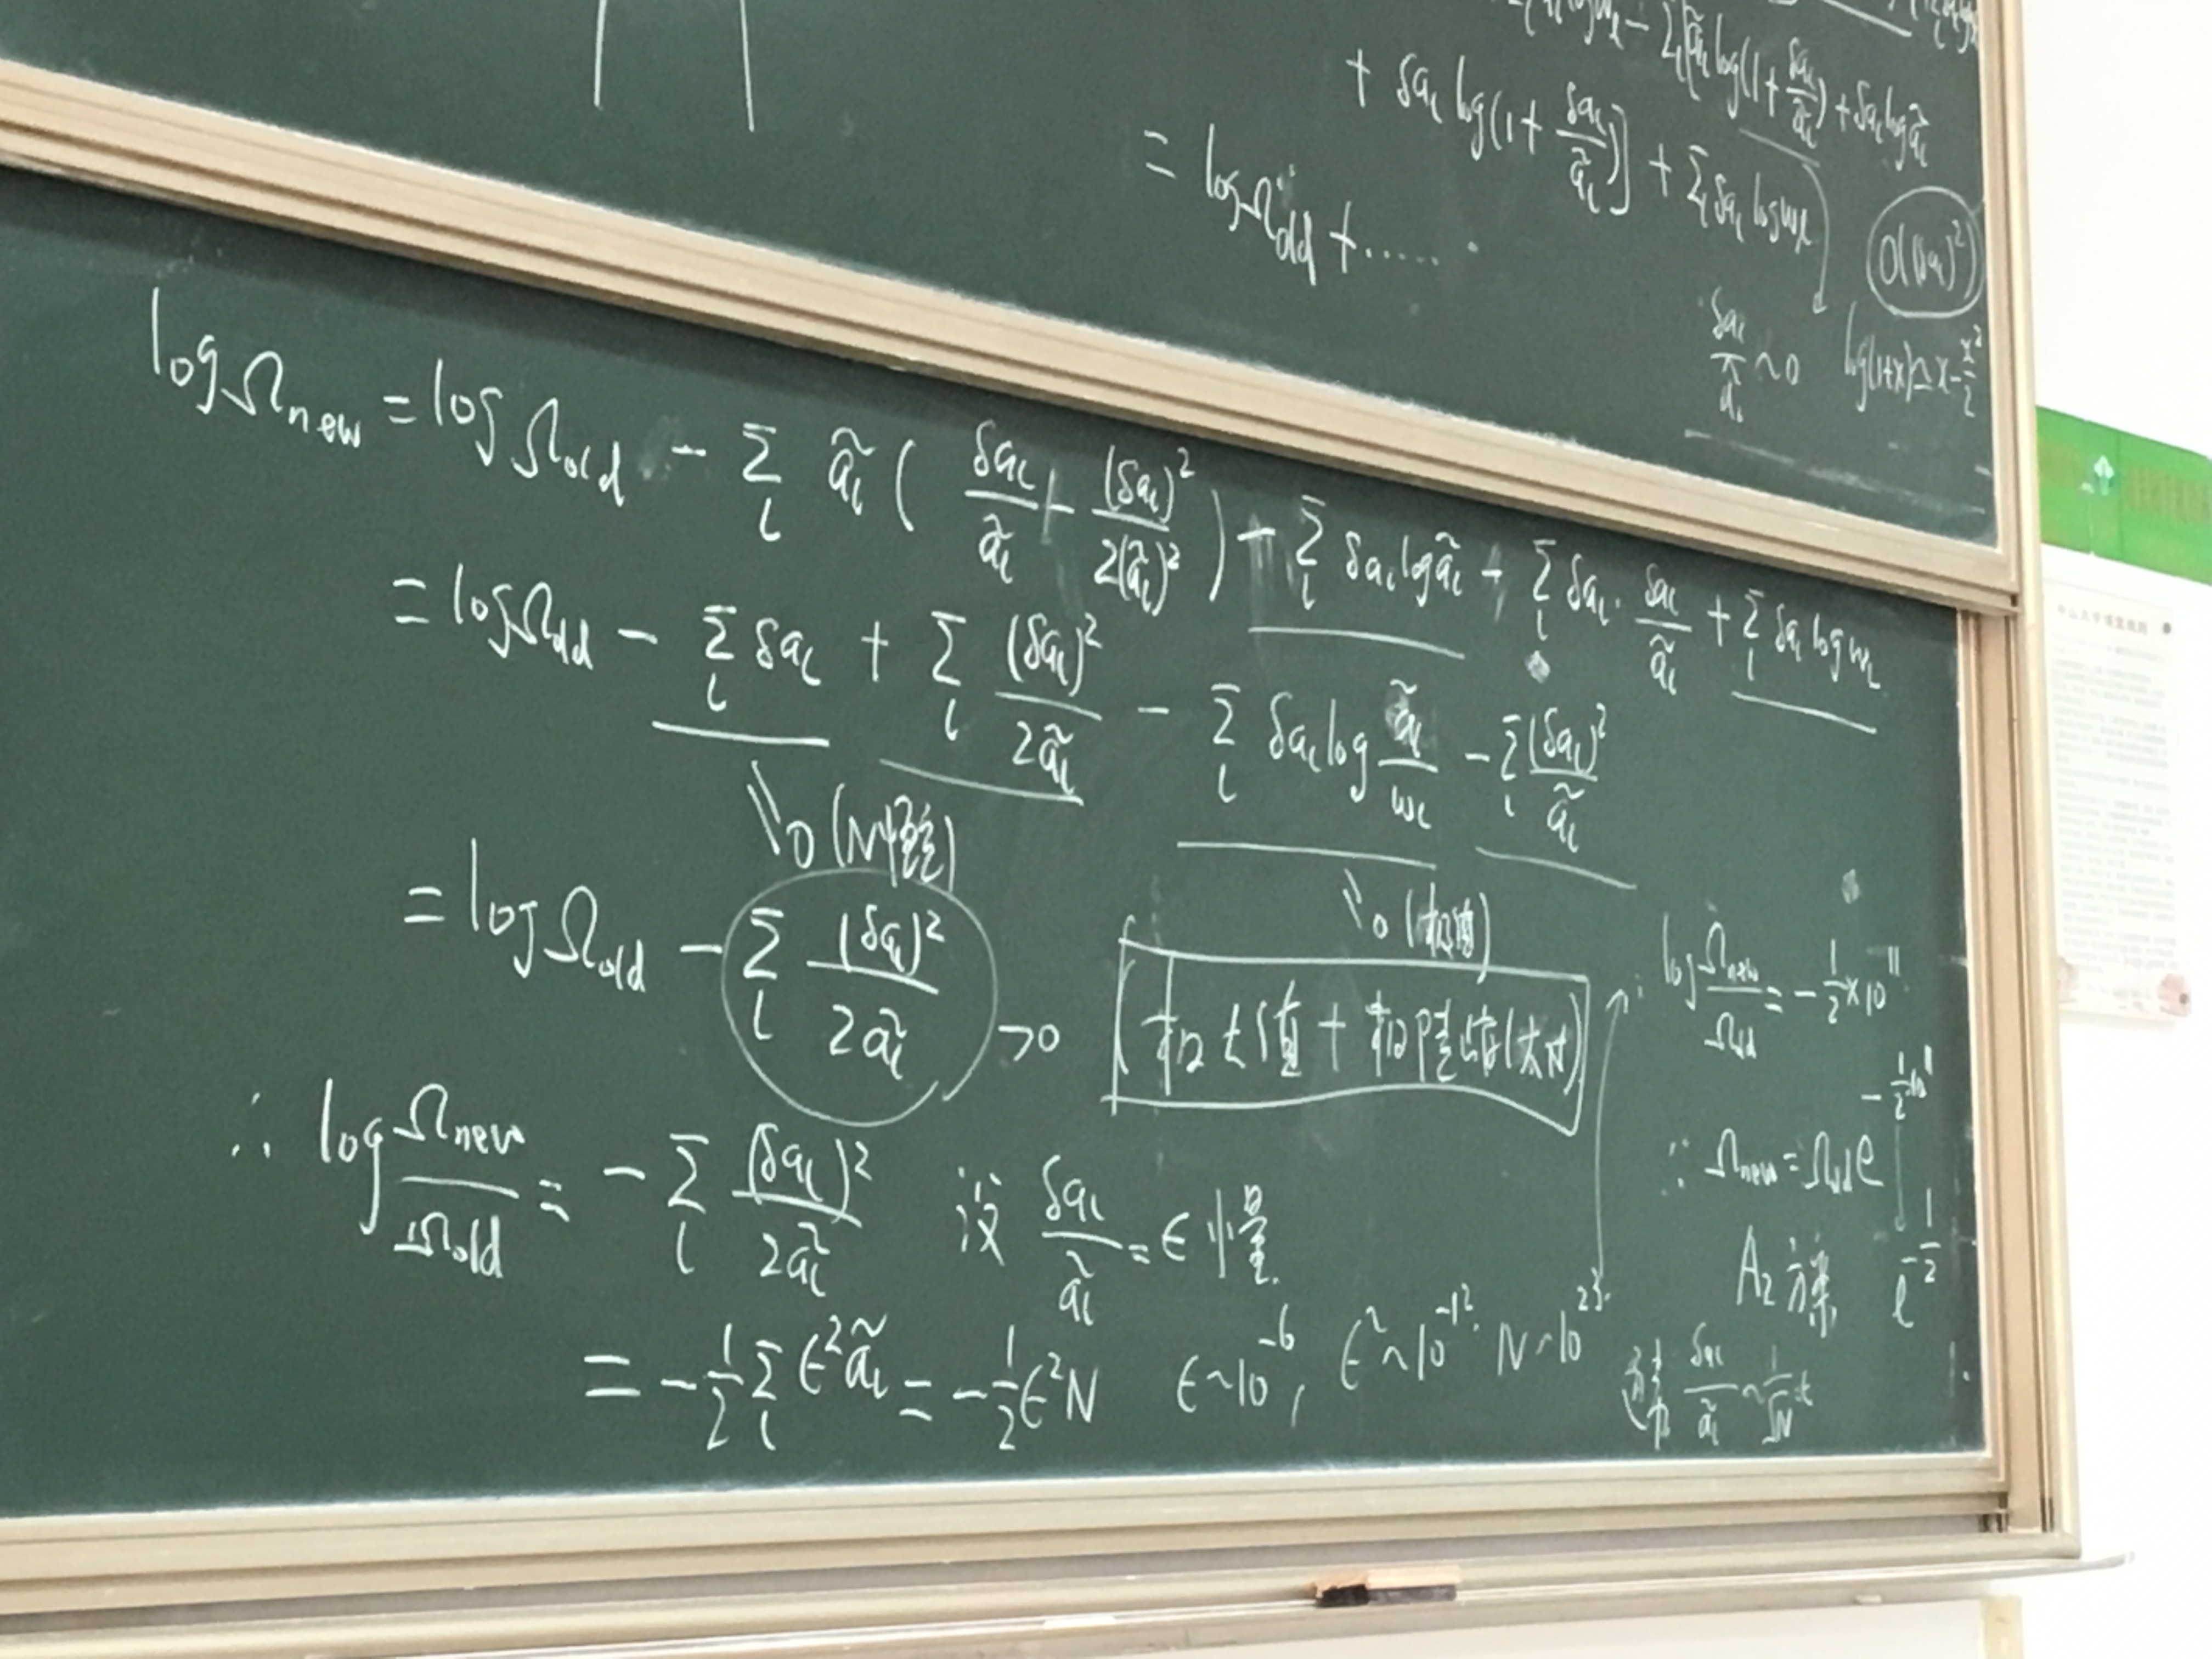 log ω_l − Σ_l [ã_l log(1 + δa_l/ã_l) + δa_l log ã_l
+ δa_l log(1 + δa_l/ã_l)] + Σ_l δa_l log ω_l
= log Ω_old + ......
O((δa_l)²)
δa_l/ã_l ~ 0 log(1+x) ≃ x − x²/2
log Ω_new = log Ω_old − Σ_l ã_l ( δa_l/ã_l − (δa_l)²/2(ã_l)² ) − Σ_l δa_l log ã_l − Σ_l δa_l · δa_l/ã_l + Σ_l δa_l log ω_l
= log Ω_old − Σ_l δa_l + Σ_l (δa_l)²/2ã_l − Σ_l δa_l log ã_l/ω_l − Σ_l (δa_l)²/ã_l
0 (N恒定)
0 (极值)
= log Ω_old − Σ_l (δa_l)²/2ã_l >0
(极大值 + 极陡峭(大N))
∴ log Ω_new/Ω_old = − Σ_l (δa_l)²/2ã_l 设 δa_l/ã_l = ϵ 常量.
= −1/2 Σ_l ϵ² ã_l = −1/2 ϵ² N ϵ~10⁻⁶, ϵ²~10⁻¹². N~10²³.
∴ log Ω_new/Ω_old = −1/2 × 10¹¹
∴ Ω_new = Ω_old e^(−1/2·10¹¹)
e^(−1/2)
δa_l/ã_l ~ 1/√N